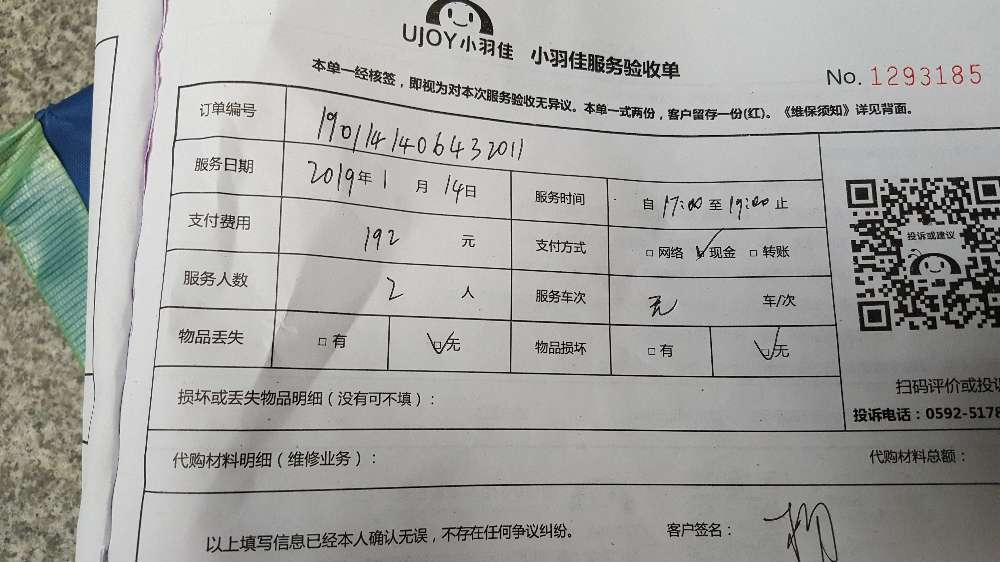 UJOY小羽佳 小羽佳服务验收单
No. 1293185
本单一经核签，即视为对本次服务验收无异议。本单一式两份，客户留存一份(红)。《维保须知》详见背面。
订单编号 1901141406432011
服务日期 2019年 1 月 14日 服务时间 自 17:00 至 19:00 止
投诉或建议
支付费用 192 元 支付方式 □ 网络 ☑ 现金 □ 转账
服务人数 2 人 服务车次 无 车/次
物品丢失 □ 有 ☑ 无 物品损坏 □ 有 ☑ 无
扫码评价或投诉
损坏或丢失物品明细（没有可不填）：
投诉电话：0592-5178
代购材料明细（维修业务）： 代购材料总额：
以上填写信息已经本人确认无误，不存在任何争议纠纷。 客户签名：